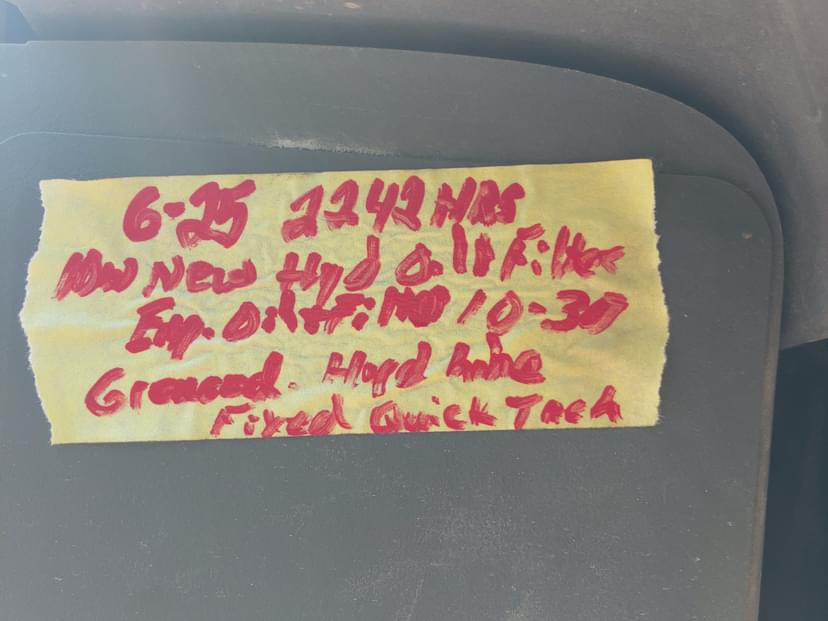 6-25 2242 HRS
New Hyd Oil & Filter
Eng. Oil & Filter 10-30
Greased. Hyd
Fixed Quick Tach